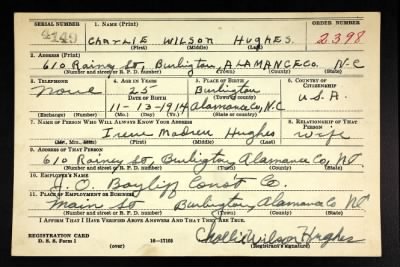 SERIAL NUMBER 1. NAME (Print) ORDER NUMBER
CHARLIE WILSON HUGHES 2398
(First) (Middle) (Last)
2. ADDRESS (Print)
610 Rainey St, Burlington, ALAMANCE Co. N.C
(Number and street or R. F. D. number) (Town) (County) (State)
3. TELEPHONE 4. AGE IN YEARS 5. PLACE OF BIRTH 6. COUNTRY OF CITIZENSHIP
None 25 Burlington
DATE OF BIRTH (Town or county) U.S.A.
11-13-1914 Alamance Co, N.C
(Exchange) (Number) (Mo.) (Day) (Yr.) (State or country)
7. NAME OF PERSON WHO WILL ALWAYS KNOW YOUR ADDRESS 8. RELATIONSHIP OF THAT PERSON
Irene Madren Hughes wife
(Mr., Mrs., Miss) (First) (Middle) (Last)
9. ADDRESS OF THAT PERSON
610 Rainey St Burlington, Alamance Co, NC
(Number and street or R. F. D. number) (Town) (County) (State)
10. EMPLOYER'S NAME
Const Co.
11. PLACE OF EMPLOYMENT OR BUSINESS
Main St Burlington, Alamance Co NC
(Number and street or R. F. D. number) (Town) (County) (State)
I AFFIRM THAT I HAVE VERIFIED ABOVE ANSWERS AND THAT THEY ARE TRUE.
REGISTRATION CARD
D. S. S. Form 1 (over) 16-17105 Wilson Hughes
(Registrant's signature)